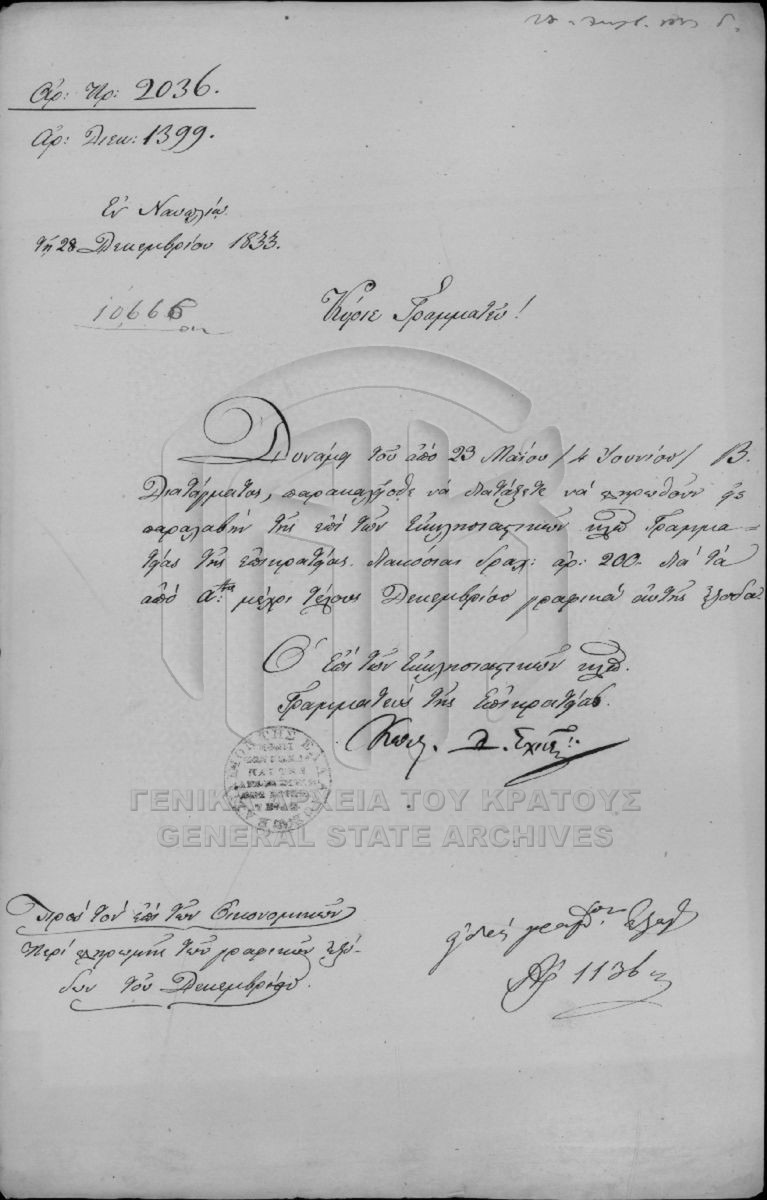 Ἀρ: Πρ: 2036.
Ἀρ: Διεκ: 1399.
Ἐν Ναυπλίῳ
τῇ 28 Δεκεμβρίου 1833.
10666
Κύριε Γραμματεῦ!
Δυνάμει τοῦ ἀπὸ 23 Μαΐου /4 Ἰουνίου/ Β.
Διατάγματος, παρακαλεῖσθε νὰ διατάξετε νὰ πληρωθοῦν εἰς
παραλαβὴν τῆς ἐπὶ τῶν Ἐκκλησιαστικῶν κλπ Γραμμα-
τείας τῆς ἐπικρατείας. διακόσιαι δραχ: ἀρ: 200. διὰ τὰ
ἀπὸ α: μέχρι τέλους Δεκεμβρίου γραφικὰ αὐτῆς ἔξοδα.
Ὁ ἐπὶ τῶν Ἐκκλησιαστικῶν κλπ.
Γραμματεὺς τῆς Ἐπικρατείας.
Κωνς. Δ. Σχιν:
ΓΕΝΙΚΑ ΑΡΧΕΙΑ ΤΟΥ ΚΡΑΤΟΥΣ
GENERAL STATE ARCHIVES
Πρὸς τὸν ἐπὶ τῶν Οἰκονομικῶν
Περὶ πληρωμῆς τῶν γραφικῶν ἐξό-
δων τοῦ Δεκεμβρίου.
1136